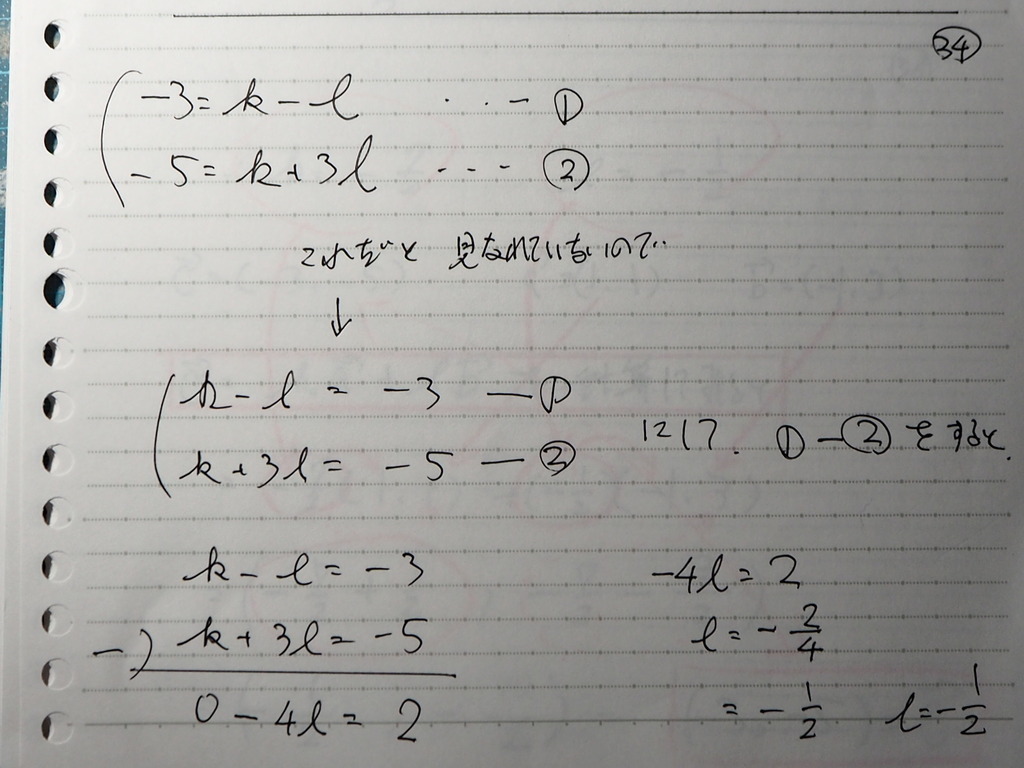 ㉞
-3 = k - l ・・・ ①
-5 = k + 3l ・・・ ②
これだと 見なれていないので‥
↓
k - l = -3 — ①
k + 3l = -5 — ②
①-②をすると.
k - l = -3
-) k + 3l = -5
0 - 4l = 2
-4l = 2
l = -2/4
= -1/2 l = -1/2